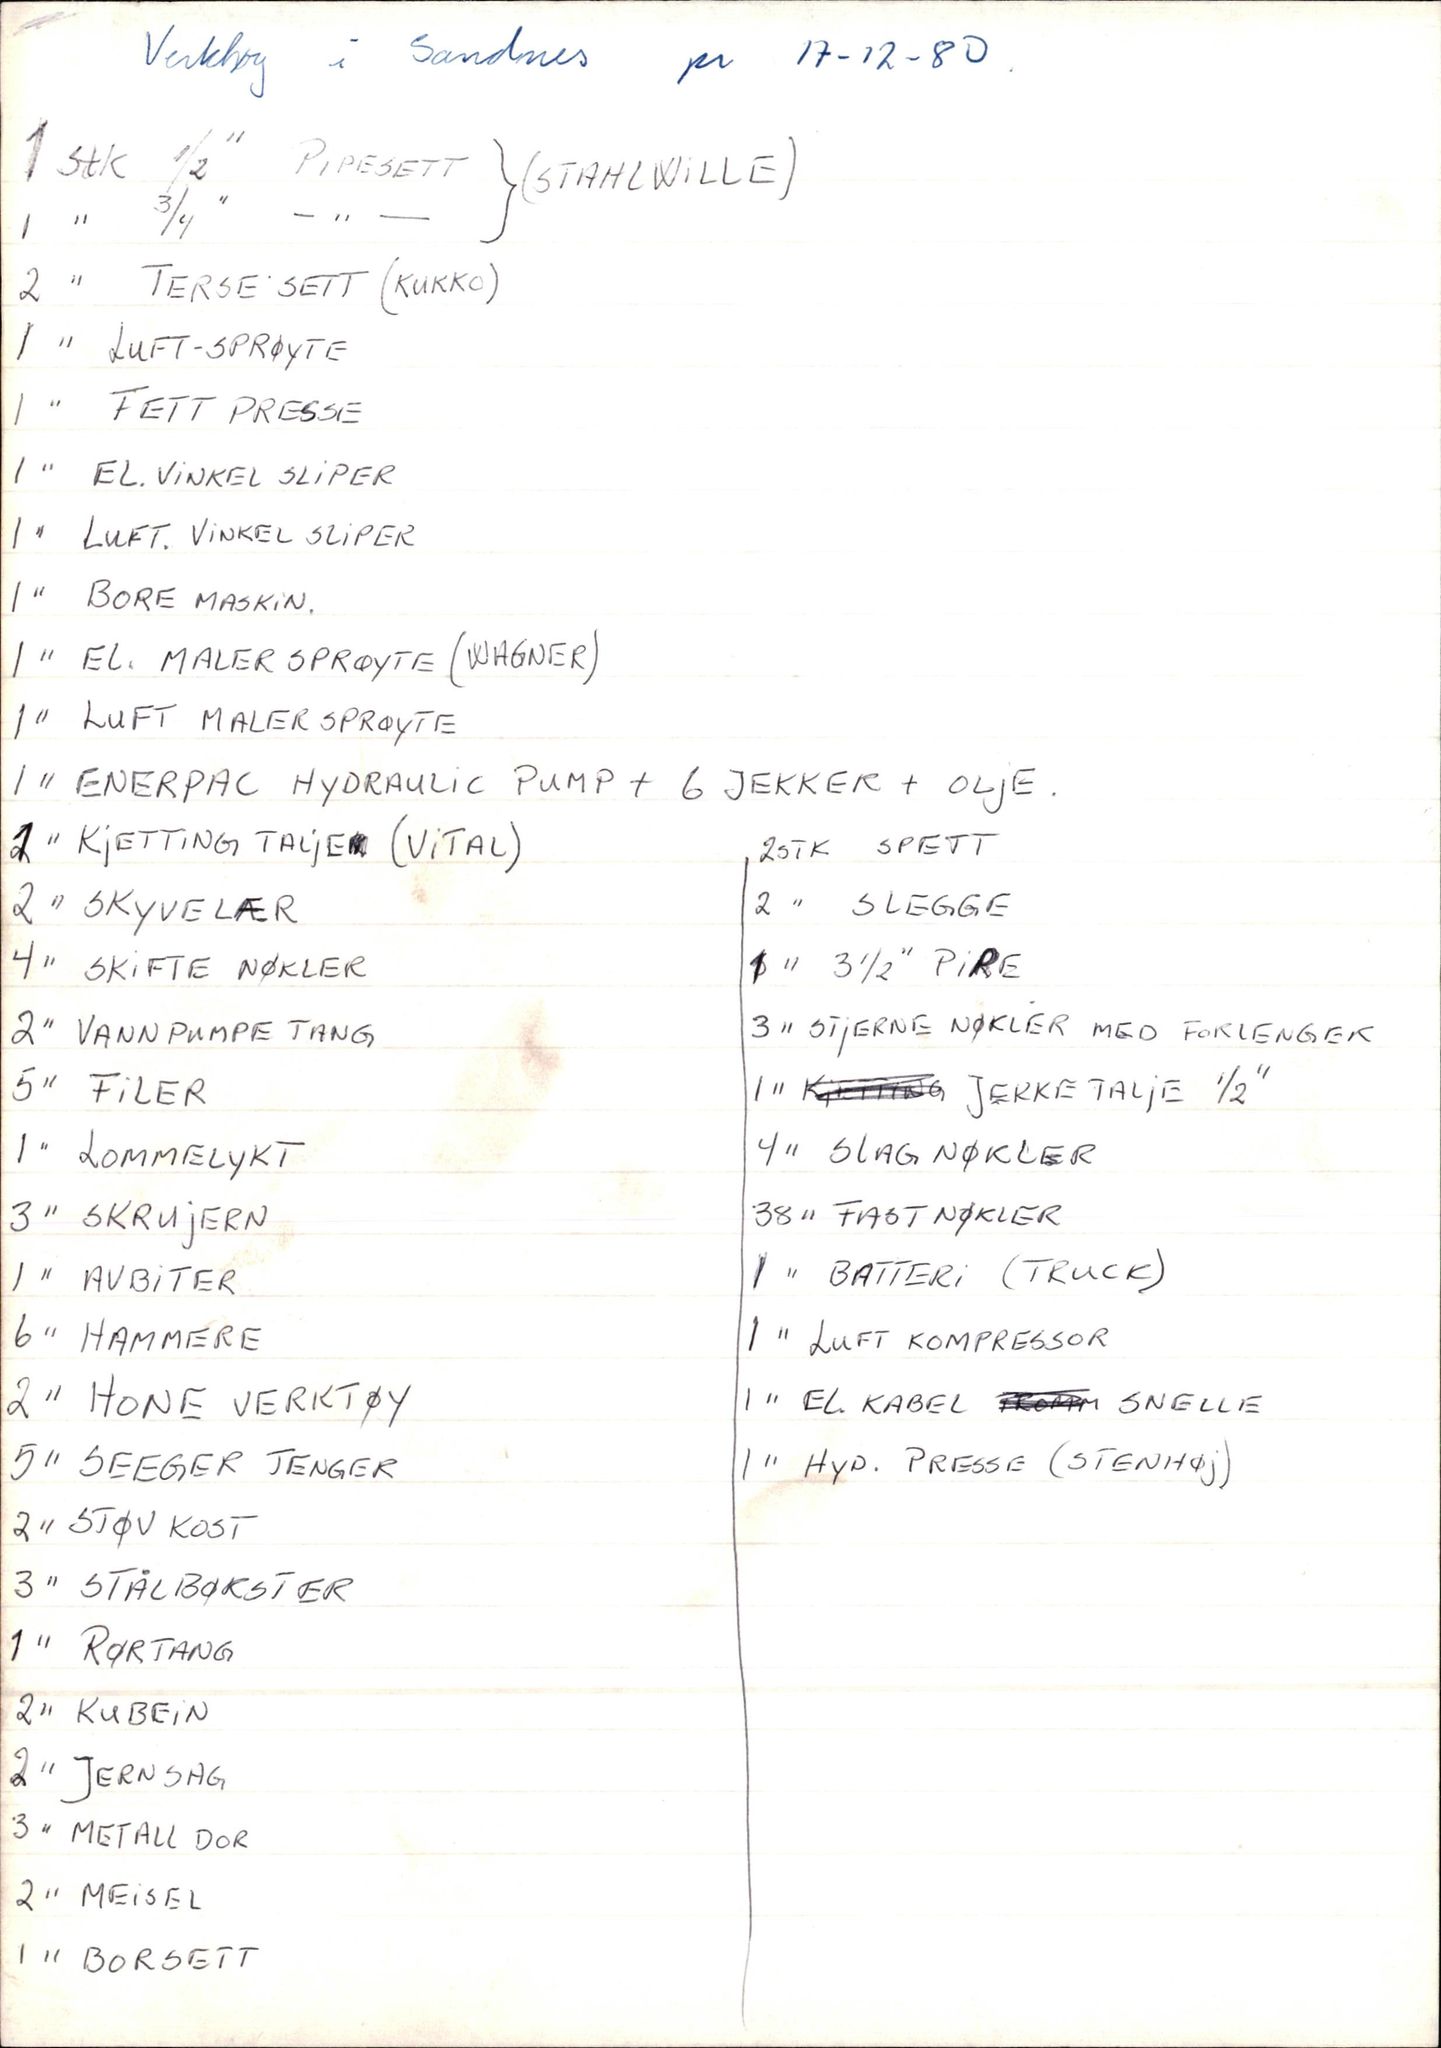 Verktøy i Sandnes pr 17-12-80.
1 Stk 1/2" PIPESETT } (STAHLWILLE)
1 " 3/4" - " -
2 " TERSE SETT (KUKKO)
1 " LUFT-SPRØYTE
1 " FETT PRESSE
1 " EL. VINKEL SLIPER
1 " LUFT. VINKEL SLIPER
1 " BORE MASKIN.
1 " EL. MALER SPRØYTE (WAGNER)
1 " LUFT MALER SPRØYTE
1 " ENERPAC HYDRAULIC PUMP + 6 JEKKER + OLJE.
1 " KJETTING TALJE (VITAL)
2 " SKYVELÆR
4 " SKIFTE NØKLER
2 " VANNPUMPE TANG
5 " FILER
1 " LOMMELYKT
3 " SKRUJERN
1 " AVBITER
6 " HAMMERE
2 " HONE VERKTØY
5 " SEEGER TENGER
2 " STØV KOST
3 " STÅLBØKSTER
1 " RØRTANG
2 " KUBEIN
2 " JERNSAG
3 " METALL DOR
2 " MEISEL
1 " BORSETT
2 STK SPETT
2 " SLEGGE
1 " 3 1/2" PIPE
3 " STJERNE NØKLER MED FORLENGER
1 " KJETTING JEKKETALJE 1/2"
4 " SLAG NØKLER
38 " FASTNØKLER
1 " BATTERI (TRUCK)
1 " LUFT KOMPRESSOR
1 " EL. KABEL TROMM SNELLE
1 " HYD. PRESSE (STENHØJ)